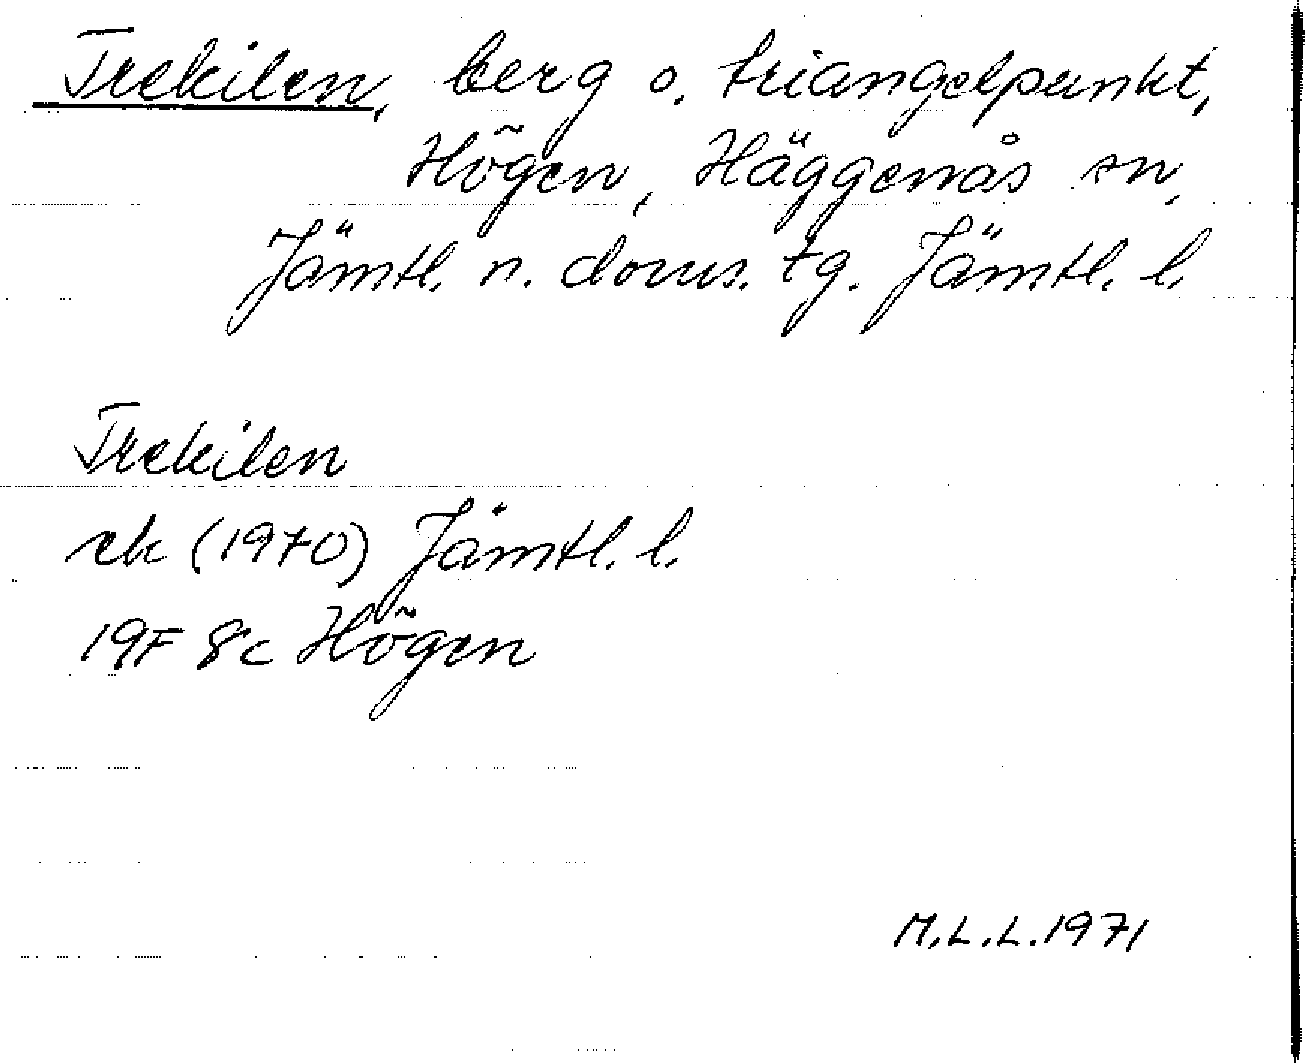 Trekilen, berg o. triangelpunkt,
Högen, Häggenås sn,
Jämtl. n. doms. tg. Jämtl. l.
Trekilen
ek (1970) Jämtl. l.
19F 8c Högen
M.L.L. 1971